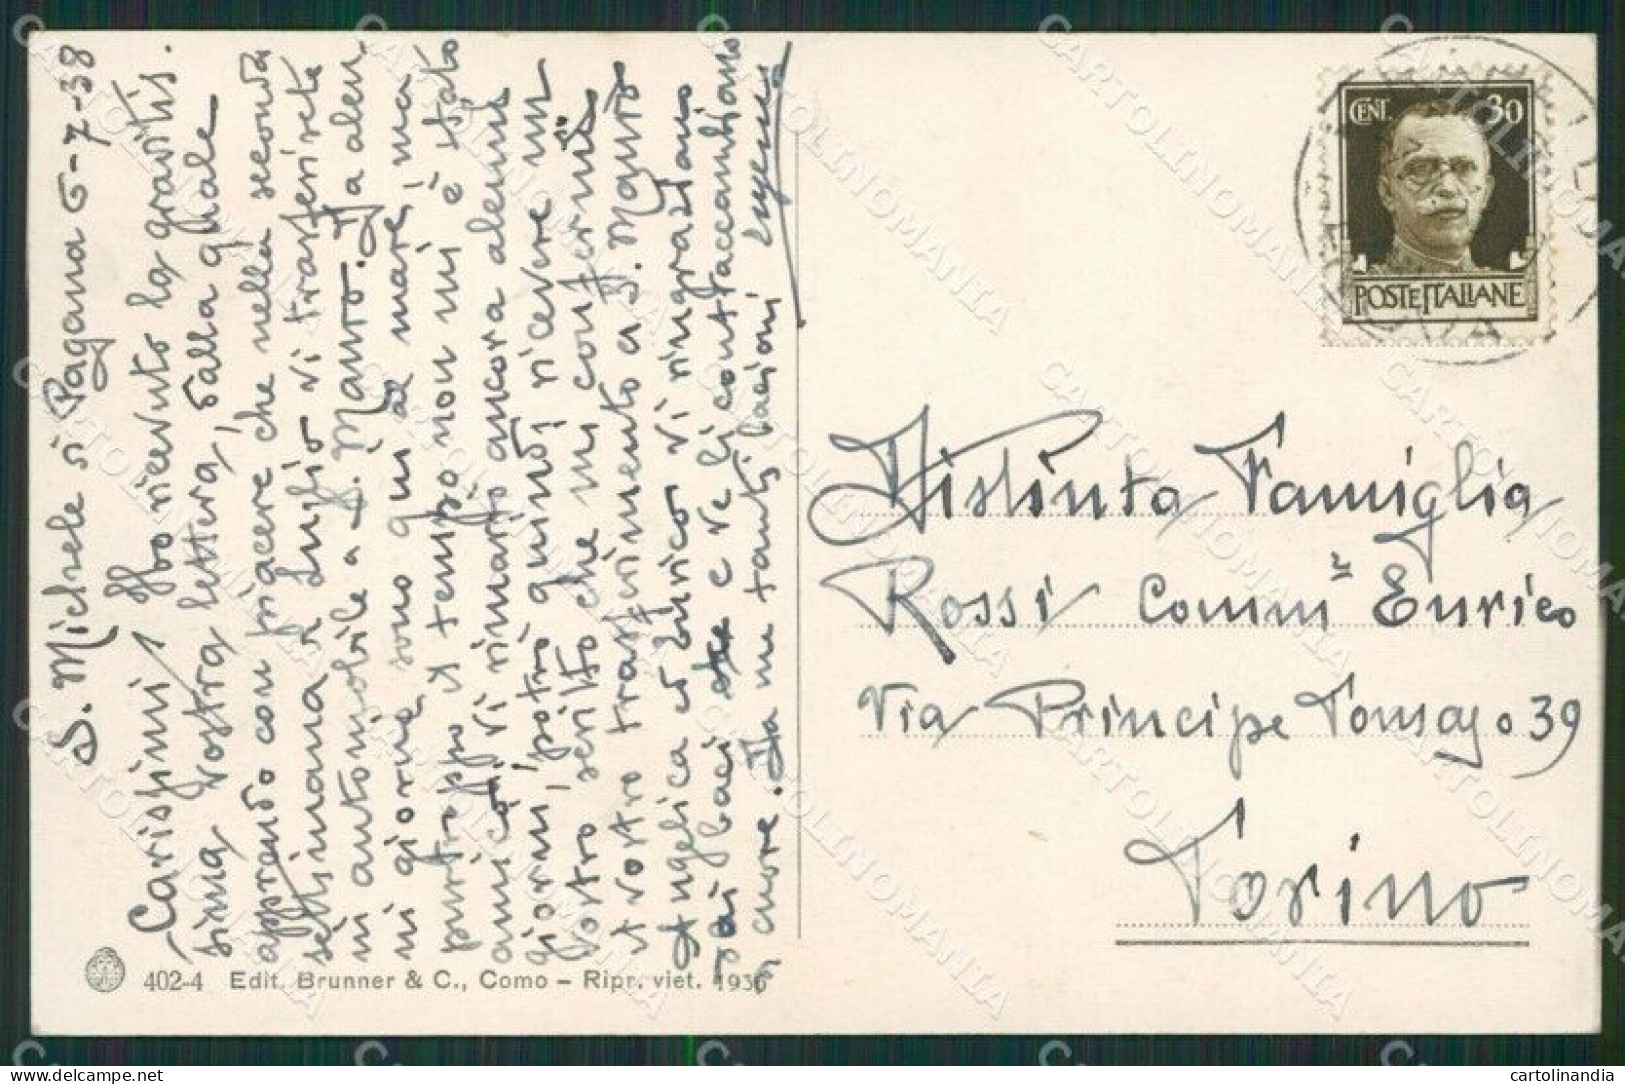 S. Michele di Pagana 6-7-38
Carissimi, Ho ricevuto la gradtis.
sima vostra lettera, dalla quale
apprendo con piacere che nella seconda
settimana di Luglio vi trasferirete
in automobile a S. Mauro. Da alcu
ni giorni sono qui al mare, ma
purtroppo il tempo non mi è stato
amico; vi rimarrò ancora alcuni
giorni, potrò quindi ricevere un
vostro scritto che mi confermi
il vostro trasferimento a S. Mauro
Angelica ed Enrico vi ringraziano
dei baci e ve li contraccambiano
di cuore. Da me tanti bacioni
402-4 Edit. Brunner & C., Como – Ripr. viet. 1936
CENT. 30
POSTE ITALIANE
Distinta Famiglia
Rossi Comm.r Enrico
Via Principe Tomaso 39
Torino
CARTOLINOMANIA
cartolinandia